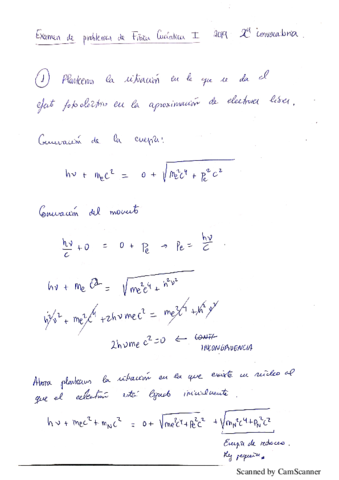 Examen de problemas de Física Cuántica I 2019 2ª Convocatoria
① Planteamos la situación en la que se da el
efecto fotoeléctrico en la aproximación de electrón libre.
Conservación de la energía:
hν + mₑc² = 0 + √(mₑ²c⁴ + pₑ²c²)
Conservación del momento
hν/c + 0 = 0 + pₑ → pₑ = hν/c
hν + mₑc² = √(mₑ²c⁴ + h²ν²)
h²ν² + mₑ²c⁴ + 2hνmₑc² = mₑ²c⁴ + h²ν²
2hνmₑc² = 0 ←
INCONGRUENCIA
Ahora planteamos la situación en la que existe un núcleo al
que el electrón está ligado inicialmente.
hν + mₑc² + m_N c² = 0 + √(mₑ²c⁴ + pₑ²c²) + √(m_N²c⁴ + p_N²c²)
Energía de retroceso.
Muy pequeña.
Scanned by CamScanner